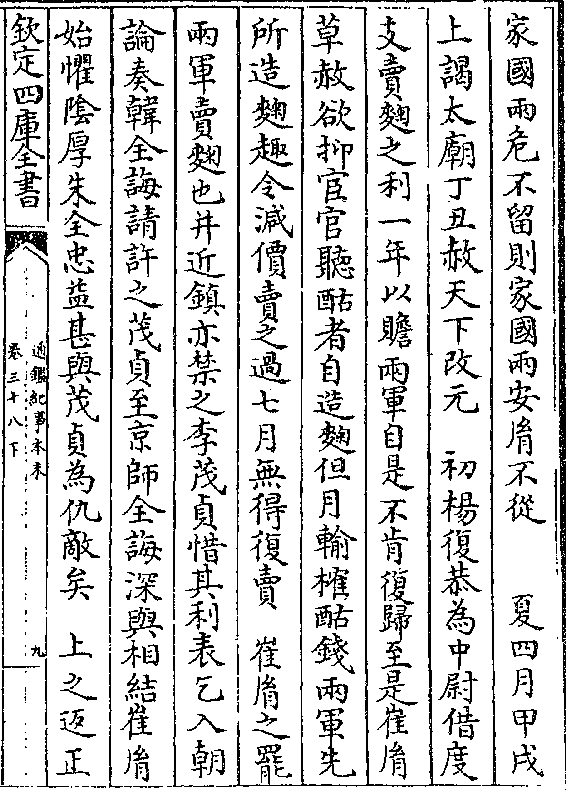 家國兩危不留則家國兩安胤不從　夏四月甲戌
上謁太廟丁丑赦天下改元　初楊復恭為中尉借度
支賣麴之利一年以贍兩軍自是不肯復歸至是崔胤
草赦欲抑宦官聽酤者自造麴但月輸榷酤錢兩軍先
所造麴趣令減價賣之過七月無得復賣　崔胤之罷
兩軍賣麴也并近鎮亦禁之李茂貞惜其利表乞入朝
論奏韓全誨請許之茂貞至京師全誨深與相結崔胤
始懼陰厚朱全忠益甚與茂貞為仇敵矣　上之返正
欽定四庫全書
通鑑紀事本末
卷三十八下
九